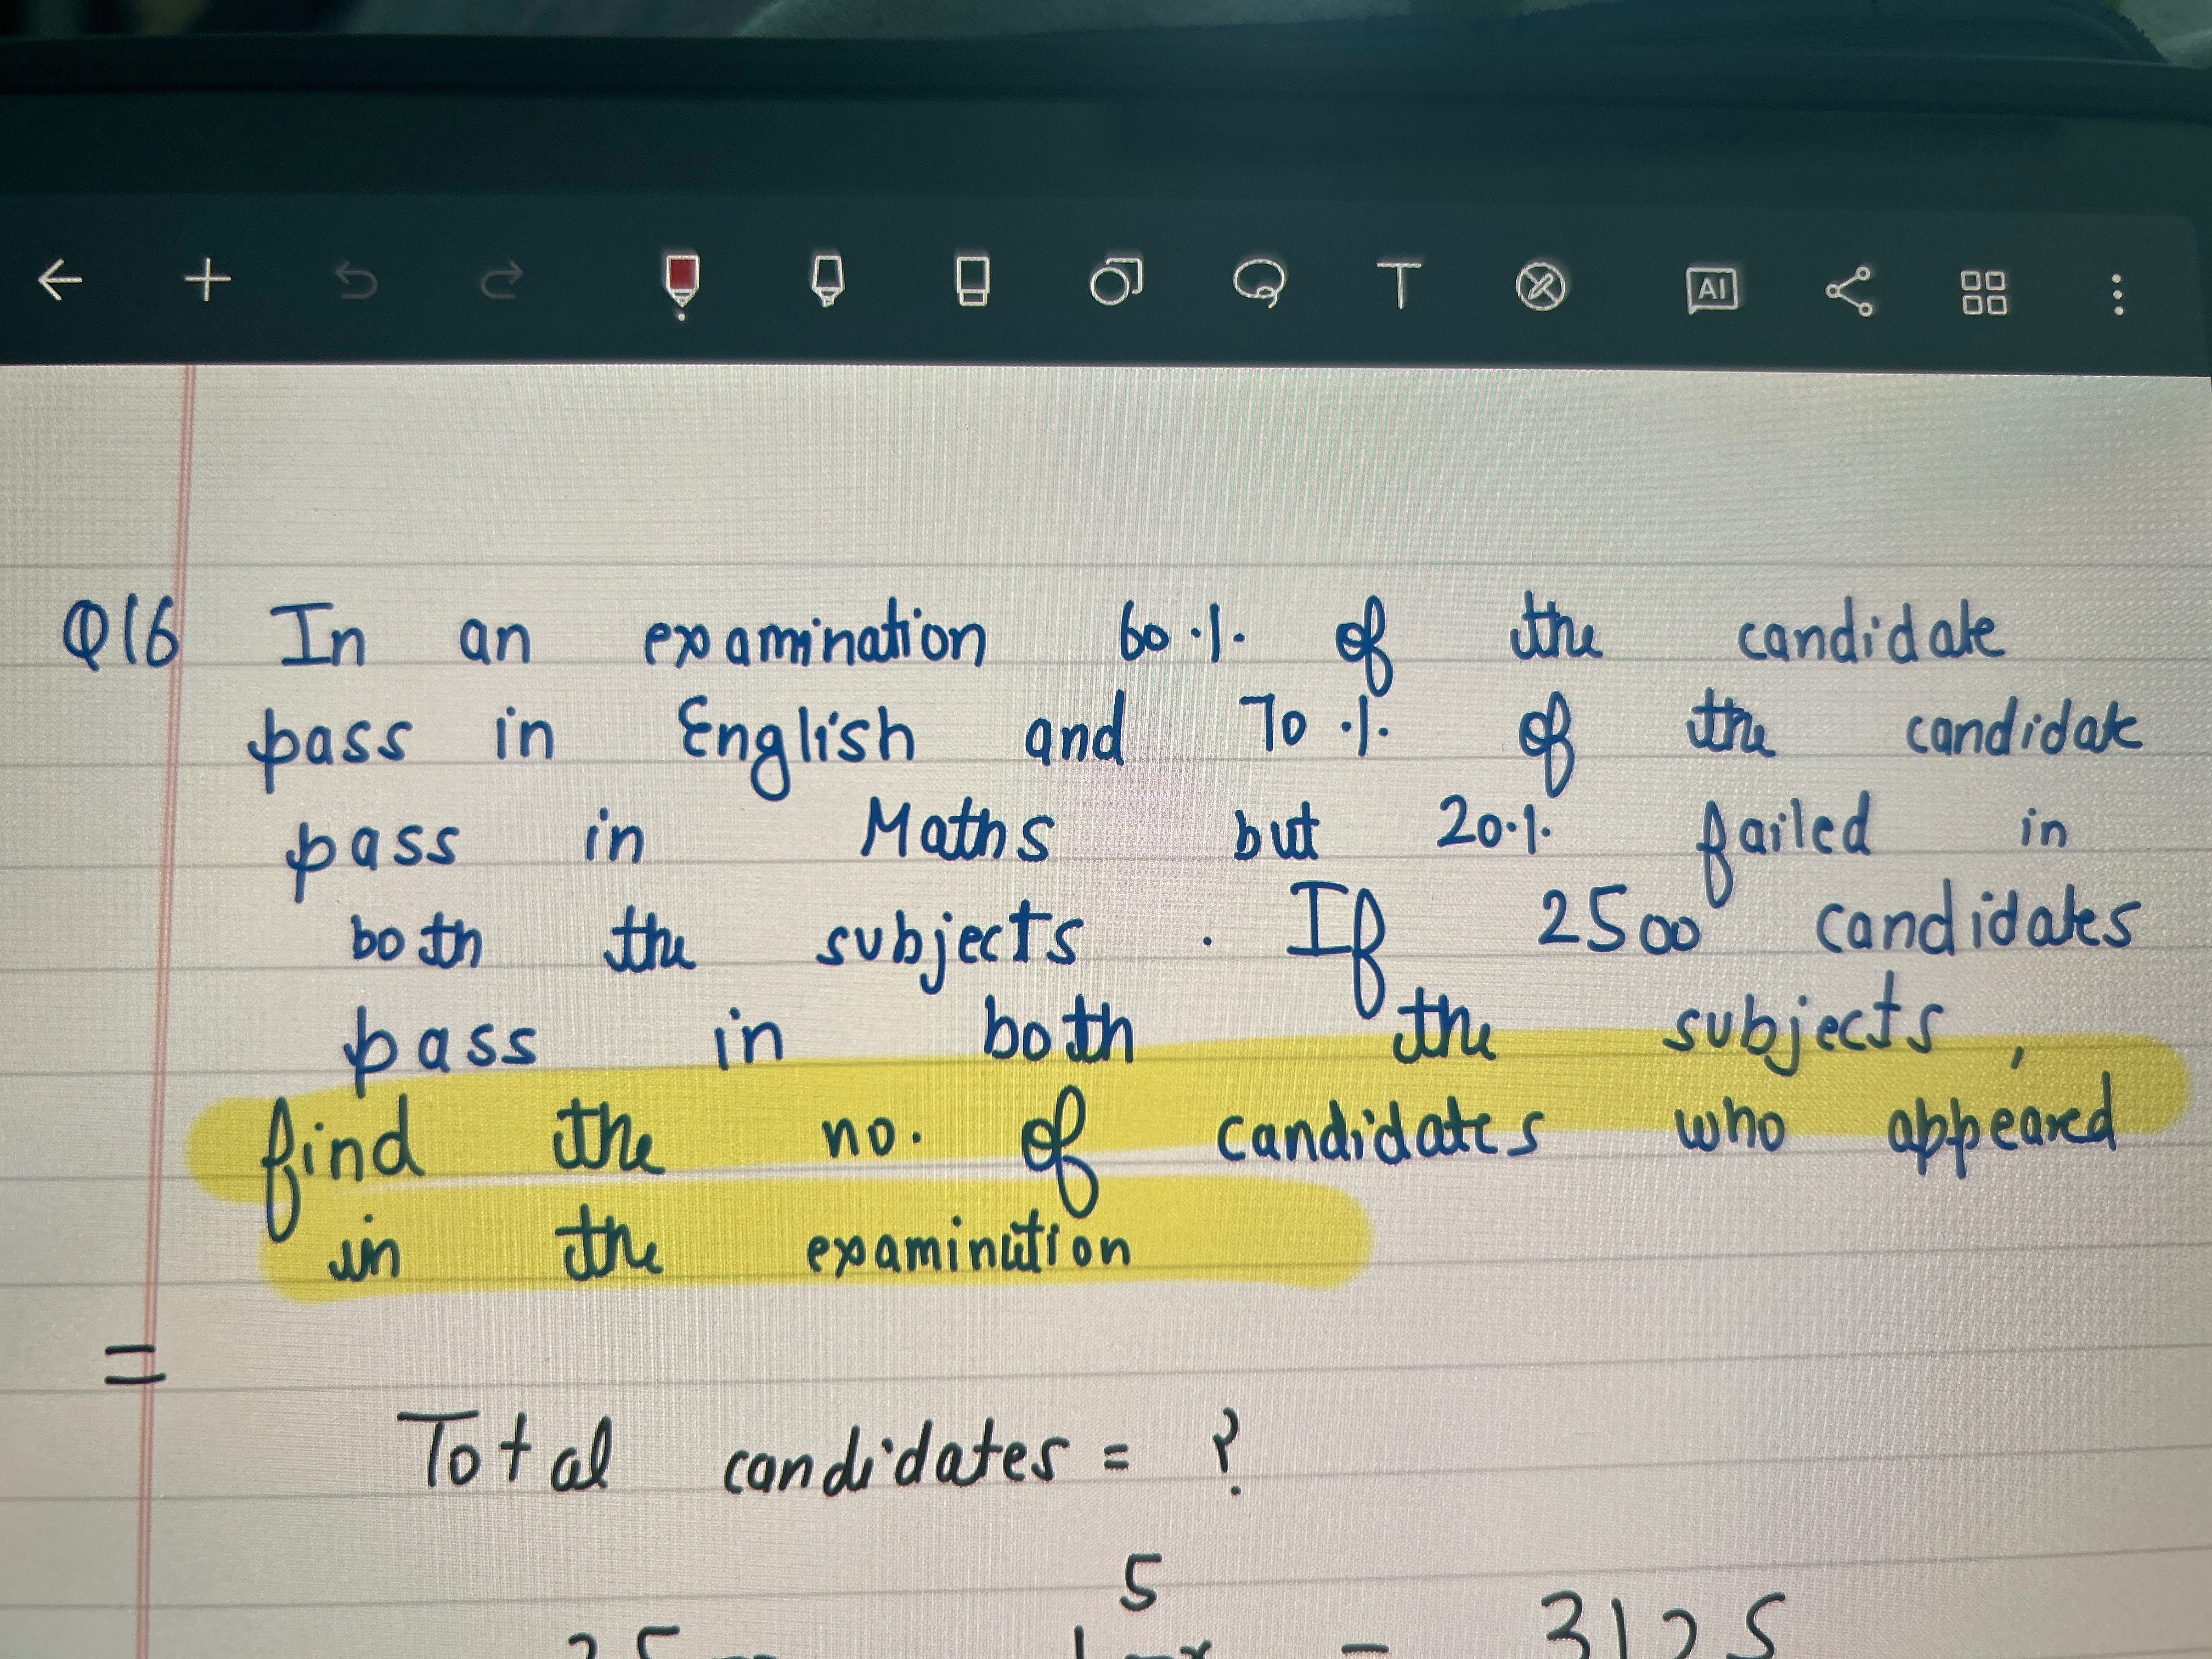 T
AI
Q16 In an examination 60% of the candidate
pass in English and 70% of the candidate
pass in Maths but 20% failed in
both the subjects. If 2500 candidates
pass in both the subjects,
find the no. of candidates who appeared
in the examination
=
Total candidates = ?
5
= 3125